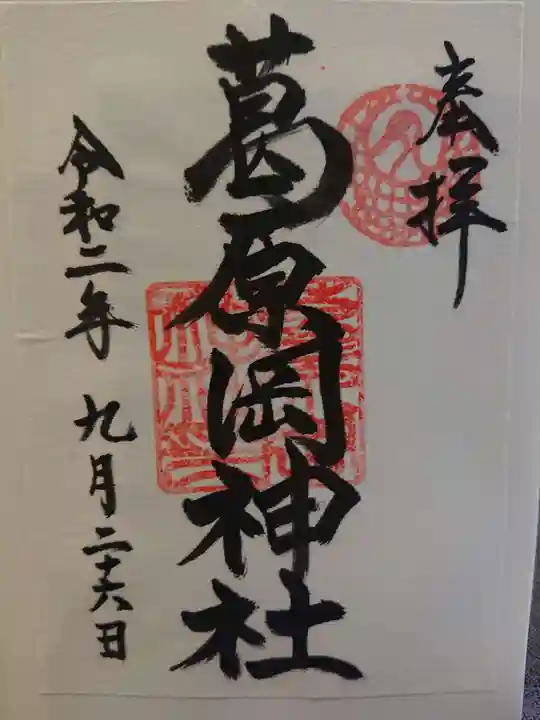 奉拝
葛原岡神社
令和二年九月二十六日